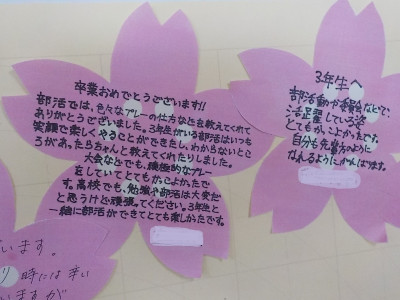 卒業おめでとうございます!!
部活では、色々なプレーの仕方などを教えてくれて
ありがとうございました。3年生がいる部活はいつも
笑顔で楽しくやることができたし、わからないとこ
ろがあったらちゃんと教えてくれたりしました。
大会などでも、積極的なプレー
をしていてとてもかっこよかったで
す。高校でも、勉強や部活は大変だ
と思うけど頑張ってください。3年生と
一緒に部活ができてとても楽しかったです。
3年生へ
部活動や委員会などで、
活躍している姿
とてもかっこよかったです。
自分も先輩方のように
なれるように、がんばります。
います。
り 時には辛い